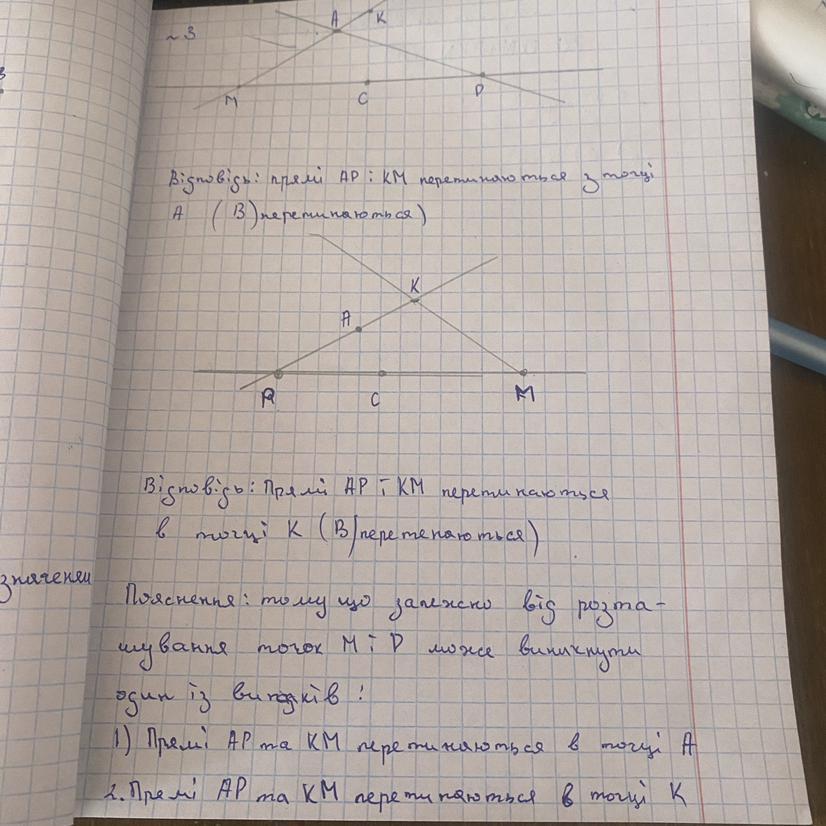 ~3
A K
M C P
Відповідь: прямі АР і КМ перетинаються з точці
А (В) перетинаються)
K
A
P C M
Відповідь: Прямі АР і КМ перетинаються
в точці К (В) перетенаються)
значення
Пояснення: тому що залежно від розта-
шування точок М і Р може виникнути
один із випадків:
1) Прямі АР та КМ перетинаються в точці А
2. Прямі АР та КМ перетинаються в точці К